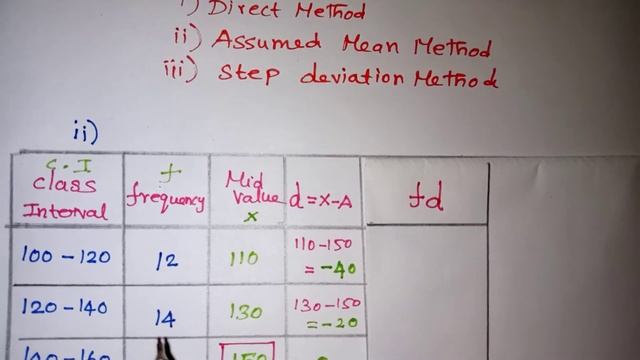 i) Direct Method
ii) Assumed Mean Method
iii) Step deviation Method
ii)
C.I
class
Interval
f
frequency
Mid
value
x
d=x-A
fd
100-120
12
110
110-150
= -40
120-140
14
130
130-150
= -20
150